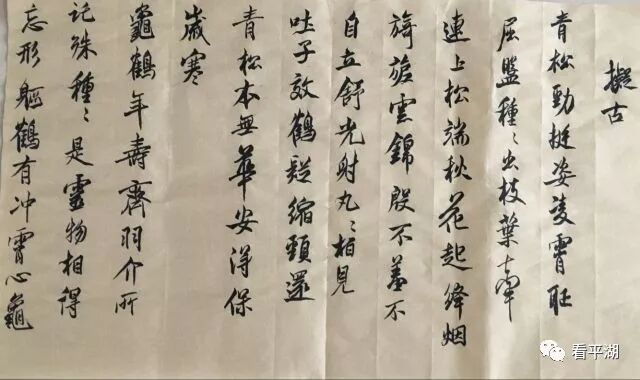 擬古
青松勁挺姿凌霄耻
屈盤種〻出枝葉牽
連上松端秋花起絳烟
旖旎雲錦殷不羞不
自立舒光射丸〻柏見
吐子效鶴疑縮頸還
青松本無華安得保
歲寒
龜鶴年壽齊羽介所
託殊種〻是靈物相得
忘形軀鶴有冲霄心龜
看平湖